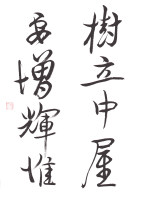 樹立中屋
增輝惟